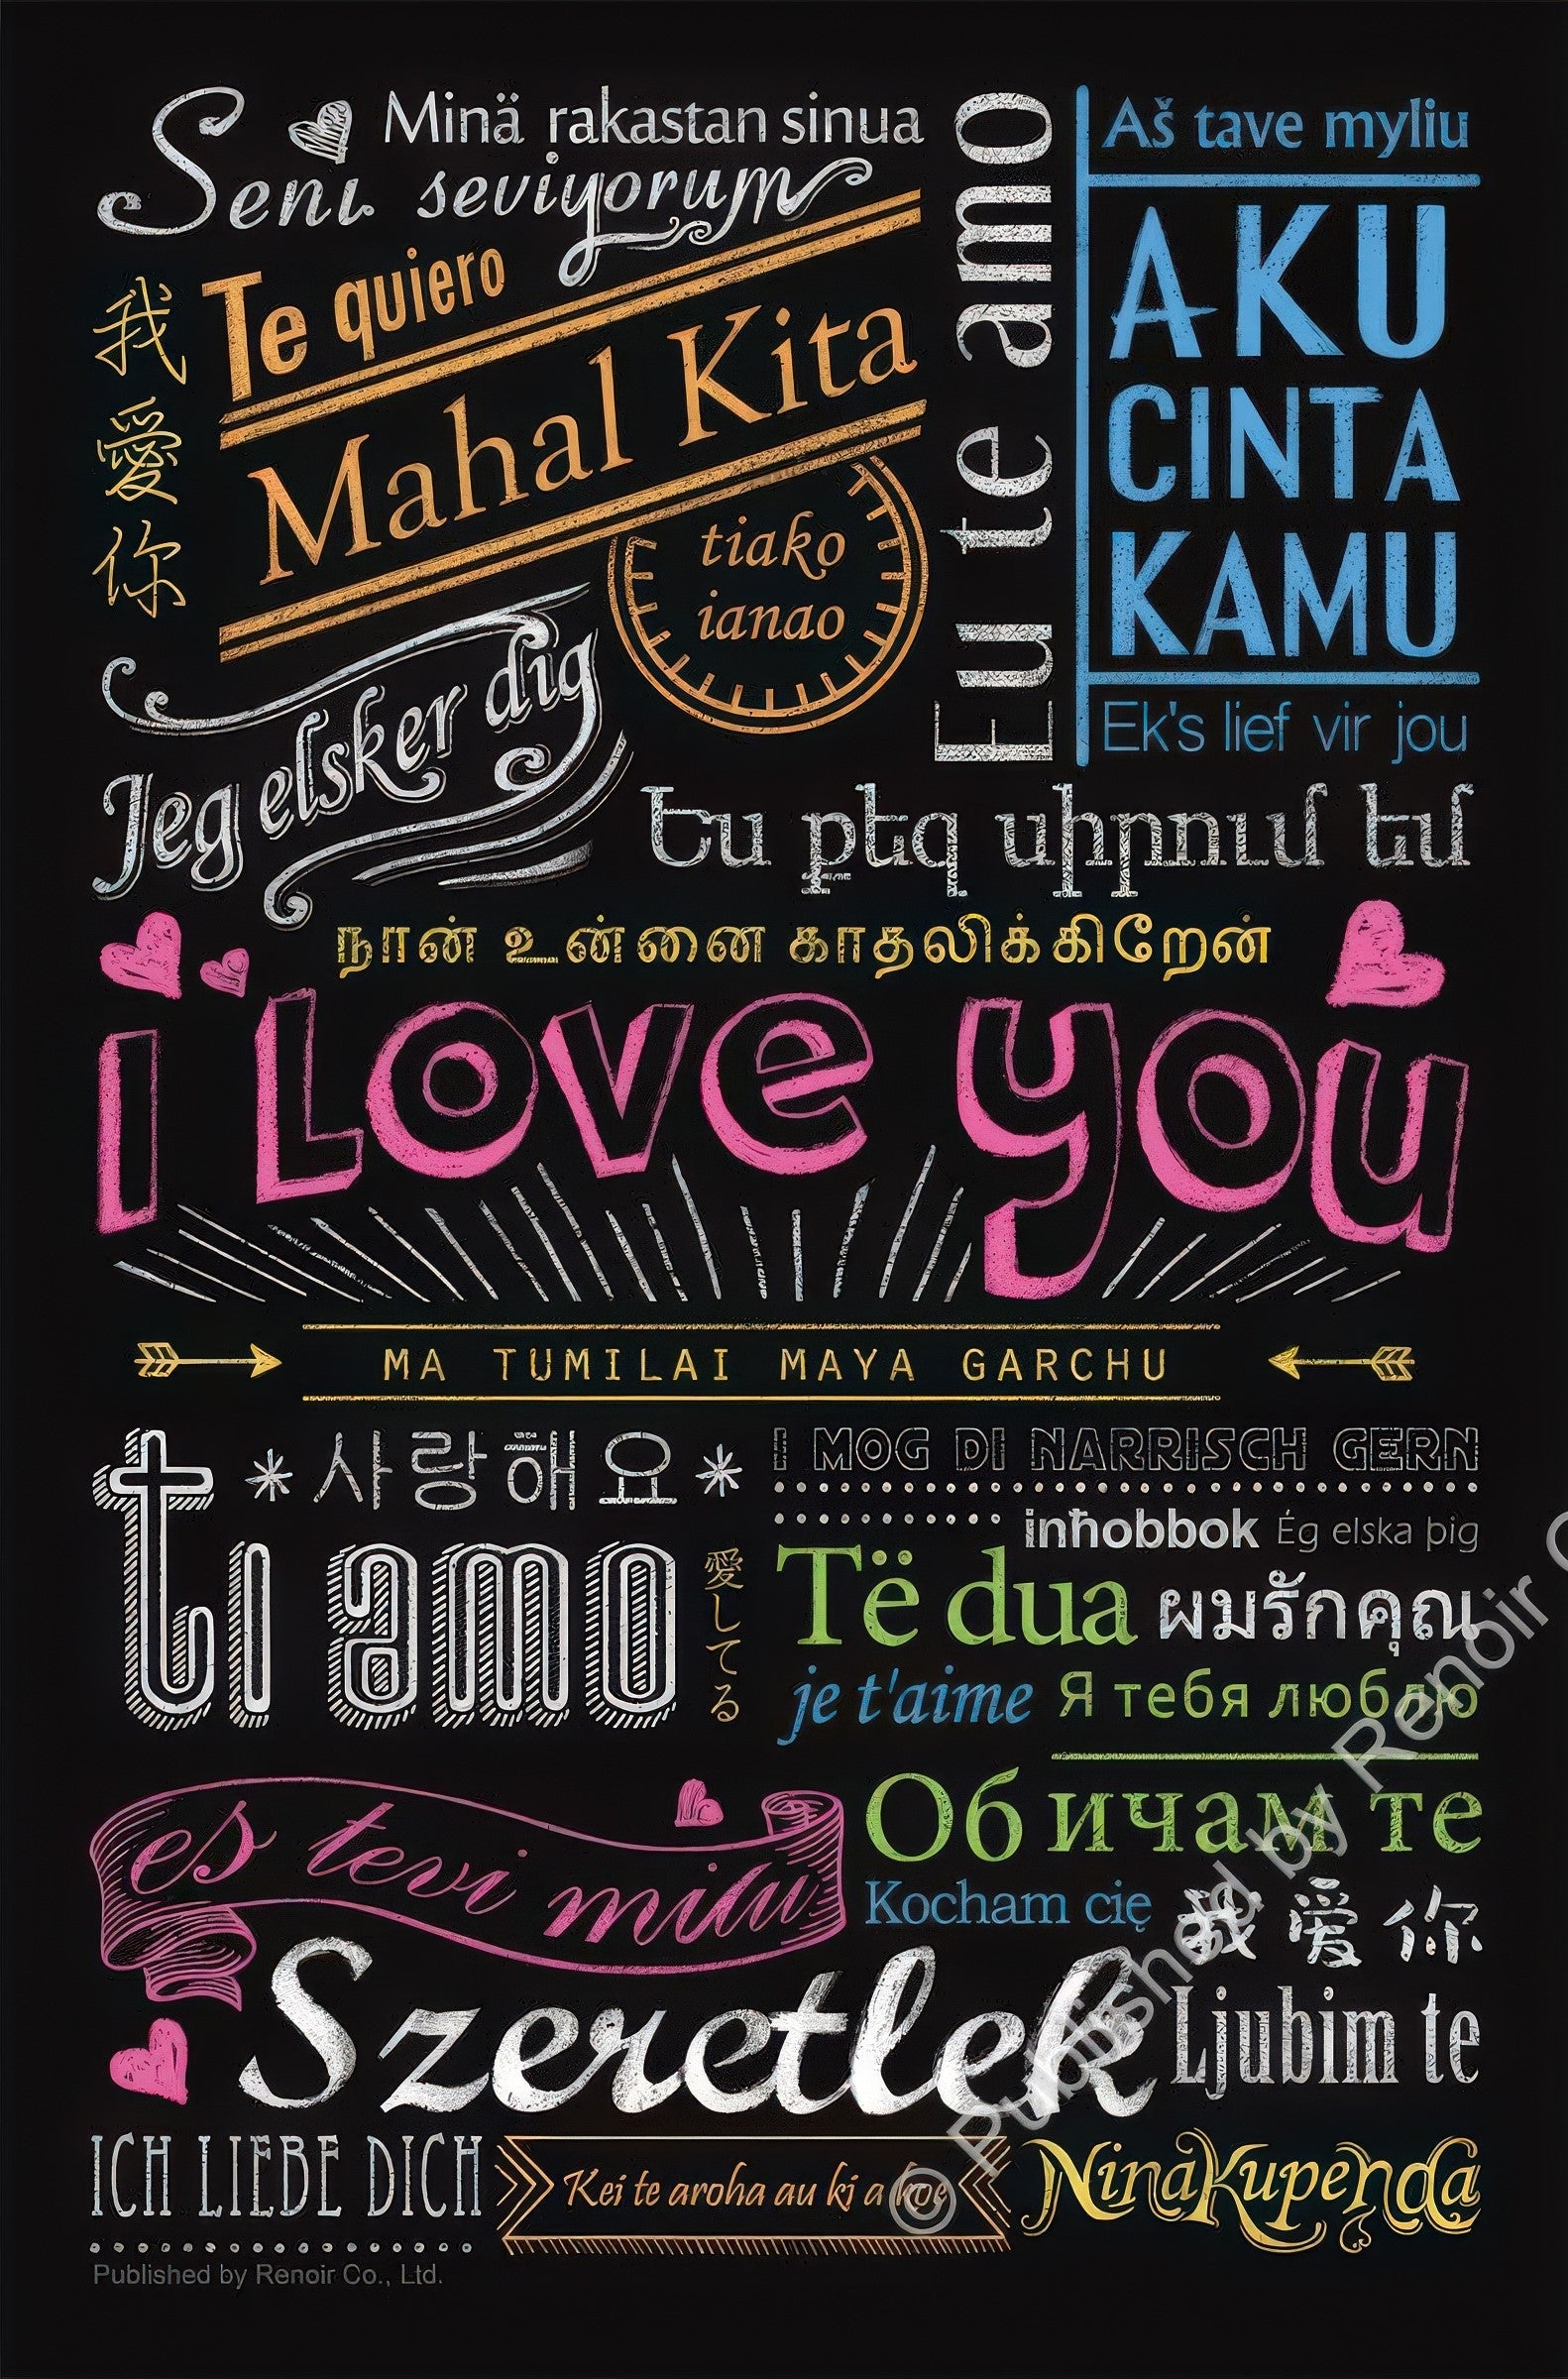 Minä rakastan sinua
Seni seviyorum
Te quiero
Mahal Kita
我愛你
tiako
ianao
Eu te amo
Aš tave myliu
AKU
CINTA
KAMU
Ek's lief vir jou
Jeg elsker dig
Ես քեզ սիրում եմ
நான் உன்னை காதலிக்கிறேன்
i Love you
MA TUMILAI MAYA GARCHU
ti amo
사랑해요
愛してる
I MOG DI NARRISCH GERN
inħobbok Ég elska þig
Të dua ผมรักคุณ
je t'aime Я тебя люблю
es tevi mīlu
Обичам те
Kocham cię 我爱你
Szeretlek
Ljubim te
ICH LIEBE DICH
Kei te aroha au ki a koe
Nina Kupenda
Published by Renoir Co., Ltd.
© Published by Renoir C